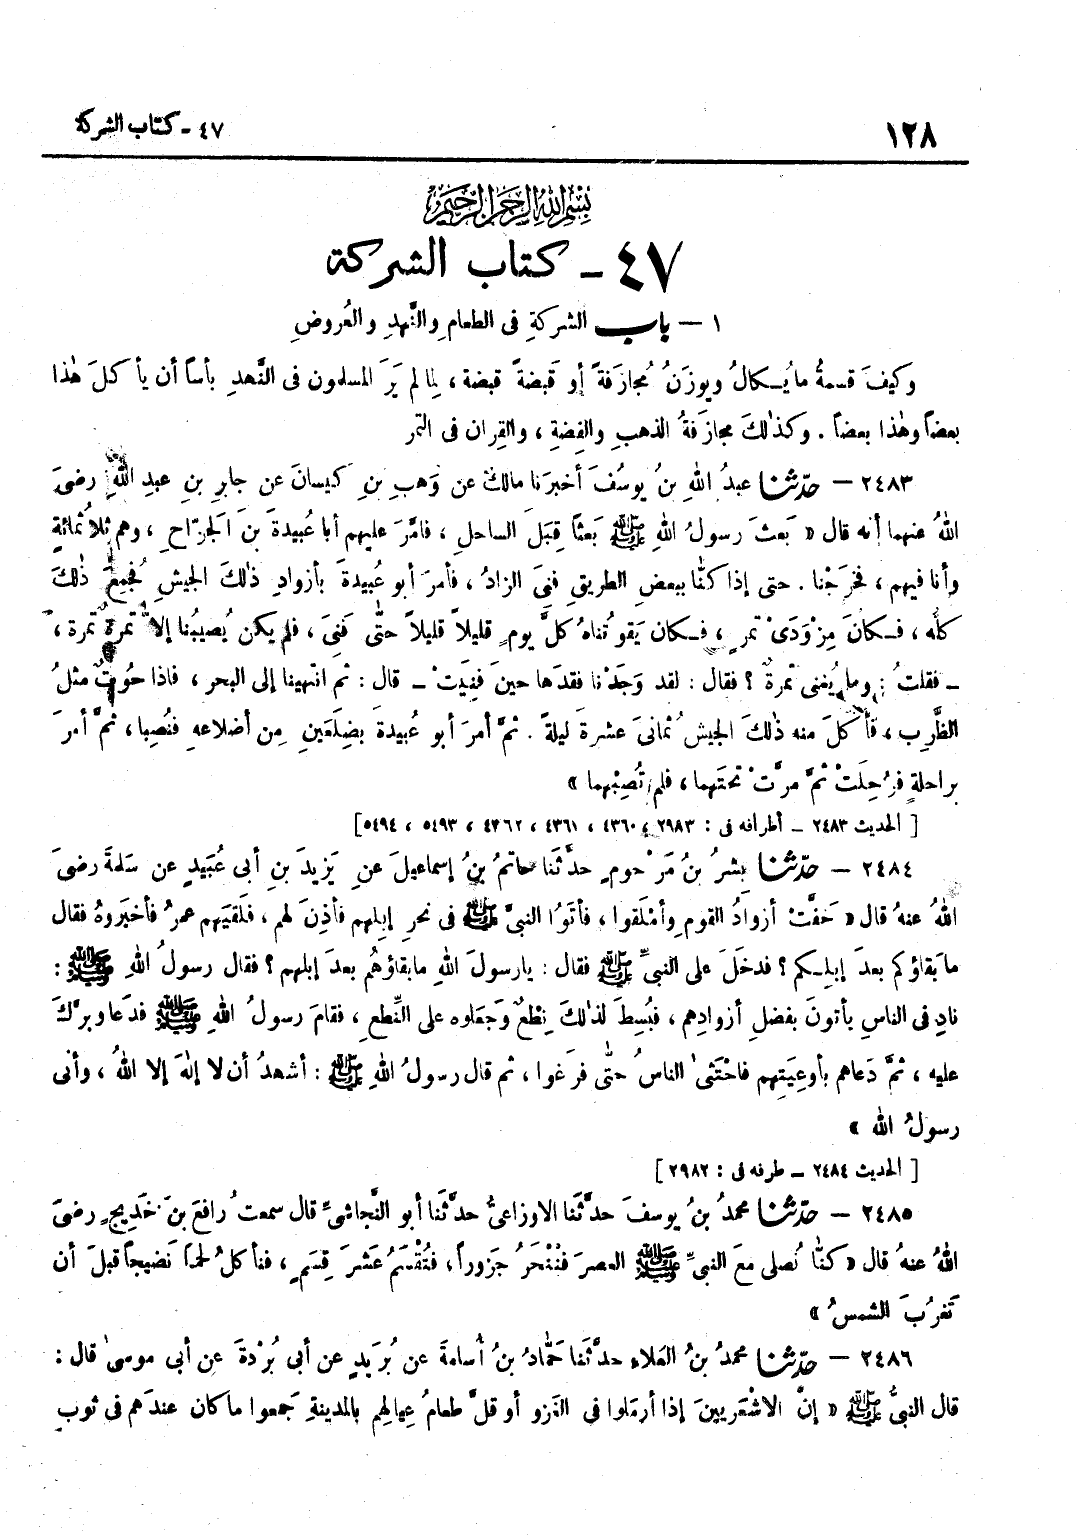 ١٢٨
٤٧ - كتاب الشركة
بسم الله الرحمن الرحيم
٤٧ - كتاب الشركة
١ - باب الشركةِ فى الطعامِ والنَّهدِ والعُروضِ
وكيفَ قسمةُ ما يُـكالُ ويوزنُ مُجازفةً أو قَبضةً قبضة ، لِما لم يَرَ المسلمون فى النَّهدِ بأساً أن يأكلَ هٰذا
بعضاً وهٰذا بعضاً . وكذٰلكَ مجازَفةُ الذهبِ والفِضةِ ، والقِران فى التمر
٢٤٨٣ - حدّثنا عبدُ اللهِ بنُ يوسُفَ أخبرَنا مالكٌ عن وَهبِ بنِ كَيسانَ عن جابرِ بنِ عبدِ اللهِ رضىَ
اللهُ عنهما أنه قال « بَعثَ رسولُ اللهِ ﷺ بَعثاً قِبَلَ الساحلِ ، فامَّرَ عليهم أبا عُبيدةَ بنَ الجرّاحِ ، وهم ثلاُثمائةٍ
وأنا فيهم ، فخرَجْنا . حتى إذا كنّا ببعضِ الطريقِ فنِىَ الزادُ ، فأمرَ أبو عُبيدةَ بأزوادِ ذٰلكَ الجيشِ فجُمِعَ ذٰلكَ
كلُّه ، فـكانَ مِزْوَدَىْ تمرٍ ، فـكان يَقوتُناهُ كلَّ يومٍ قليلاً قليلاً حتّى فَنِىَ ، فلم يكن يُصيبُنا إلاّ تمرةٌ تمرة ،
- فقلتُ : وما يُغنى تمرةٌ ؟ فقال : لقد وَجَدْنا فقدَها حينَ فَنِيَتْ - قال : ثم انتهينا إلى البحر ، فاذا حُوتٌ مثلُ
الظَّرِب ، فأكلَ منه ذٰلكَ الجيشُ ثمانىَ عشرةَ ليلةً . ثمَّ أمرَ أبو عُبيدةَ بضِلَعَينِ مِن أضلاعهِ فنُصِبا ، ثمَّ أمرَ
براحلةٍ فرُحِلَتْ ثمَّ مرَّتْ تحتَهما ، فلم تُصِبْهما »
[ الحديث ٢٤٨٣ - أطرافه فى : ٢٩٨٣ ، ٤٣٦٠ ، ٤٣٦١ ، ٤٣٦٢ ، ٥٤٩٣ ، ٥٤٩٤ ]
٢٤٨٤ - حدّثنا بشرُ بنُ مَرْحومٍ حدَّثَنا حاتمُ بنُ إسماعيلَ عن يَزيدَ بنِ أبى عُبَيدٍ عن سَلمةَ رضىَ
اللهُ عنهُ قال « خَفَّتْ أزوادُ القومِ وأمْلَقوا ، فأتَوُا النبىَّ ﷺ فى نحرِ إبلِهم فأذِنَ لهم ، فلَقيَهم عمرُ فأخبَروهُ فقال
ما بَقاؤكم بعدَ إبلِـكم ؟ فدخَلَ على النبىِّ ﷺ فقال : يارسولَ اللهِ ما بقاؤهُم بعدَ إبلِهم ؟ فقال رسولُ اللهِ ﷺ :
نادِ فى الناسِ يأتونَ بفضلِ أزوادِهم ، فبُسِطَ لذٰلكَ نِطَعٌ وَجَعلوه على النِّطعِ ، فقامَ رسولُ اللهِ ﷺ فدَعا وبرَّكَ
عليه ، ثمَّ دَعاهم بأوعِيَتِهم فاحْتَثىٰ الناسُ حتّٰى فرَغوا ، ثم قال رسولُ اللهِ ﷺ : أشهدُ أن لا إلٰهَ إلا اللهُ ، وأنى
رسولُ الله »
[ الحديث ٢٤٨٤ - طرفه فى : ٢٩٨٢ ]
٢٤٨٥ - حدّثنا محمدُ بنُ يوسفَ حدَّثَنا الاوزاعىُّ حدَّثَنا أبو النَّجاشىِّ قال سمعتُ رافعَ بنَ خَديجٍ رضىَ
اللهُ عنهُ قال « كنّا نُصلى معَ النبىِّ ﷺ العصرَ فنَنْحَرُ جَزوراً ، فتُقْسَمُ عَشرَ قِسَمٍ ، فنأكلُ لحماً نَضيجاً قبلَ أن
تَغرُبَ الشمسُ »
٢٤٨٦ - حدّثنا محمدُ بنُ العَلاءِ حدَّثَنا حَمّادُ بنُ أُسامةَ عن بُرَيدٍ عن أبى بُرْدةَ عن أبى موسىٰ قال :
قال النبىُّ ﷺ « إنَّ الاشْعَريينَ إذا أرمَلوا فى الغَزوِ أو قلَّ طعامُ عِيالِهم بالمدينةِ جَمعوا ما كان عندَهم فى ثوبٍ